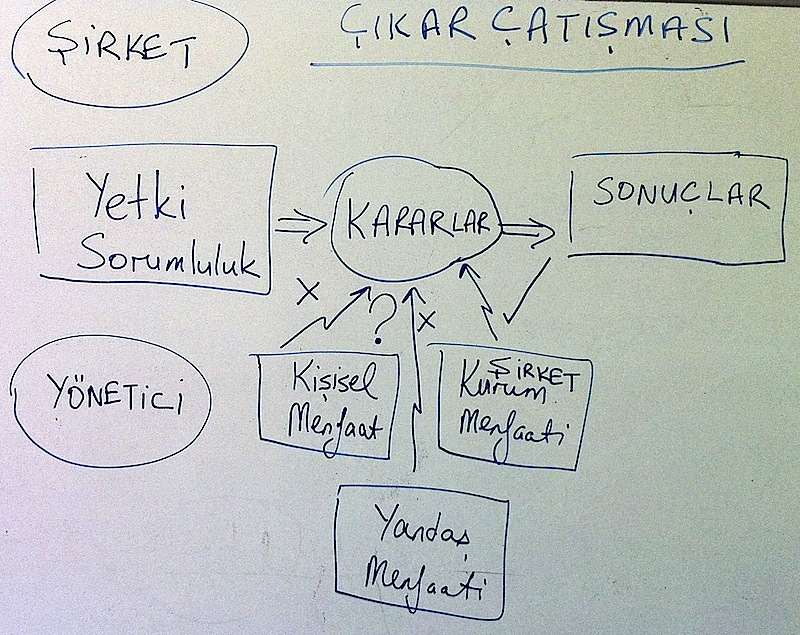 ŞİRKET
ÇIKAR ÇATIŞMASI
Yetki
Sorumluluk
KARARLAR
SONUÇLAR
X
?
X
✓
YÖNETİCİ
Kişisel
Menfaat
ŞİRKET
Kurum
Menfaati
Yandaş
Menfaati